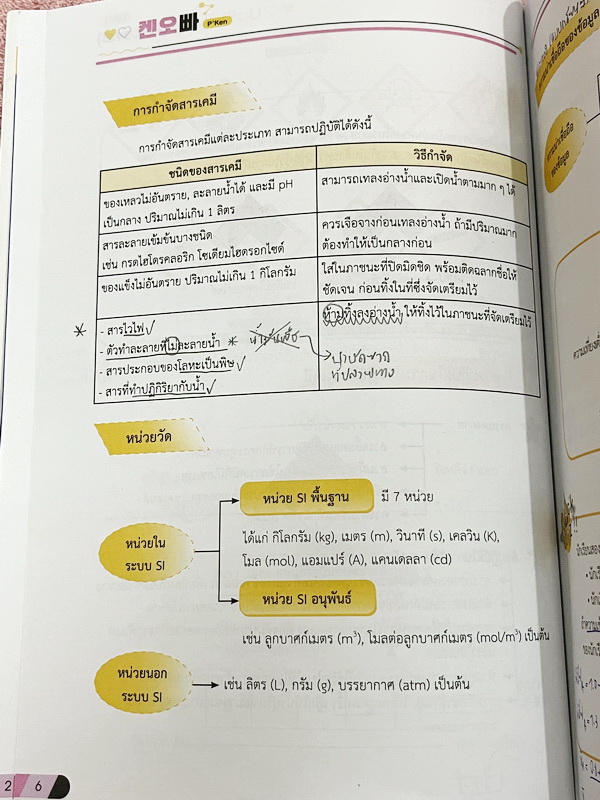 켄오빠 P'Ken
การกำจัดสารเคมี
การกำจัดสารเคมีแต่ละประเภท สามารถปฏิบัติได้ดังนี้
ชนิดของสารเคมี
วิธีกำจัด
ของเหลวไม่อันตราย, ละลายน้ำได้ และมี pH
เป็นกลาง ปริมาณไม่เกิน 1 ลิตร
สามารถเทลงอ่างน้ำและเปิดน้ำตามมาก ๆ ได้
สารละลายเข้มข้นบางชนิด
เช่น กรดไฮโดรคลอริก โซเดียมไฮดรอกไซด์
ควรเจือจางก่อนเทลงอ่างน้ำ ถ้ามีปริมาณมาก
ต้องทำให้เป็นกลางก่อน
ของแข็งไม่อันตราย ปริมาณไม่เกิน 1 กิโลกรัม
ใส่ในภาชนะที่ปิดมิดชิด พร้อมติดฉลากชื่อให้
ชัดเจน ก่อนทิ้งในที่ซึ่งจัดเตรียมไว้
- สารไวไฟ
- ตัวทำละลายที่ไม่ละลายน้ำ
- สารประกอบของโลหะเป็นพิษ
- สารที่ทำปฏิกิริยากับน้ำ
ห้ามทิ้งลงอ่างน้ำ ให้ทิ้งไว้ในภาชนะที่จัดเตรียมไว้
หน่วยวัด
หน่วยใน
ระบบ SI
หน่วย SI พื้นฐาน มี 7 หน่วย
ได้แก่ กิโลกรัม (kg), เมตร (m), วินาที (s), เคลวิน (K),
โมล (mol), แอมแปร์ (A), แคนเดลลา (cd)
หน่วย SI อนุพันธ์
เช่น ลูกบาศก์เมตร (m³), โมลต่อลูกบาศก์เมตร (mol/m³) เป็นต้น
หน่วยนอก
ระบบ SI
เช่น ลิตร (L), กรัม (g), บรรยากาศ (atm) เป็นต้น
2 6